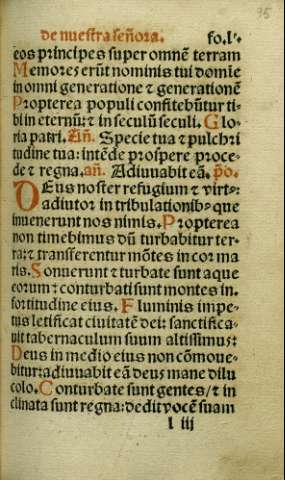 95
de nuestra señora. fo.l⁊.
eos principes super omnē terram
Memores erūt nominis tui domīe
in omni generatione ⁊ generationē
Propterea populi confitebūtur ti-
bi in eternū: ⁊ in seculū seculi. Glo-
ria patri. Añ. Specie tua ⁊ pulchri
tudine tua: intēde prospere proce-
de ⁊ regna. añ. Adiuvabit eā. p̄o.
DEus noster refugium ⁊ virt⁹:
adiutor in tribulationib⁹ que
inuenerunt nos nimis. Propterea
non timebimus dū turbabitur ter-
ra: ⁊ transferentur mōtes in cor ma
ris. Sonuerunt ⁊ turbate sunt aque
eorum: ⁊ conturbati sunt montes in
fortitudine eius. Fluminis impe-
tus letificat ciuitatē dei: sanctifica-
uit tabernaculum suum altissimus:
Deus in medio eius non cōmoue-
bitur: adiuuabit eā deus mane dilu
colo. Conturbate sunt gentes/ ⁊ in
clinata sunt regna: dedit vocē suam
l iij